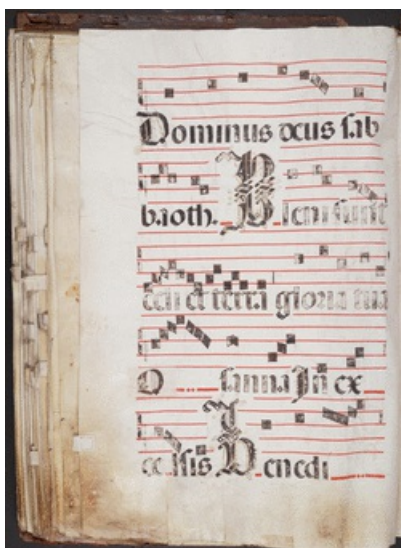 Dominus deus sab
baoth. Pleni sunt
celi et terra gloria tua
O sanna In ex
celsis Benedi